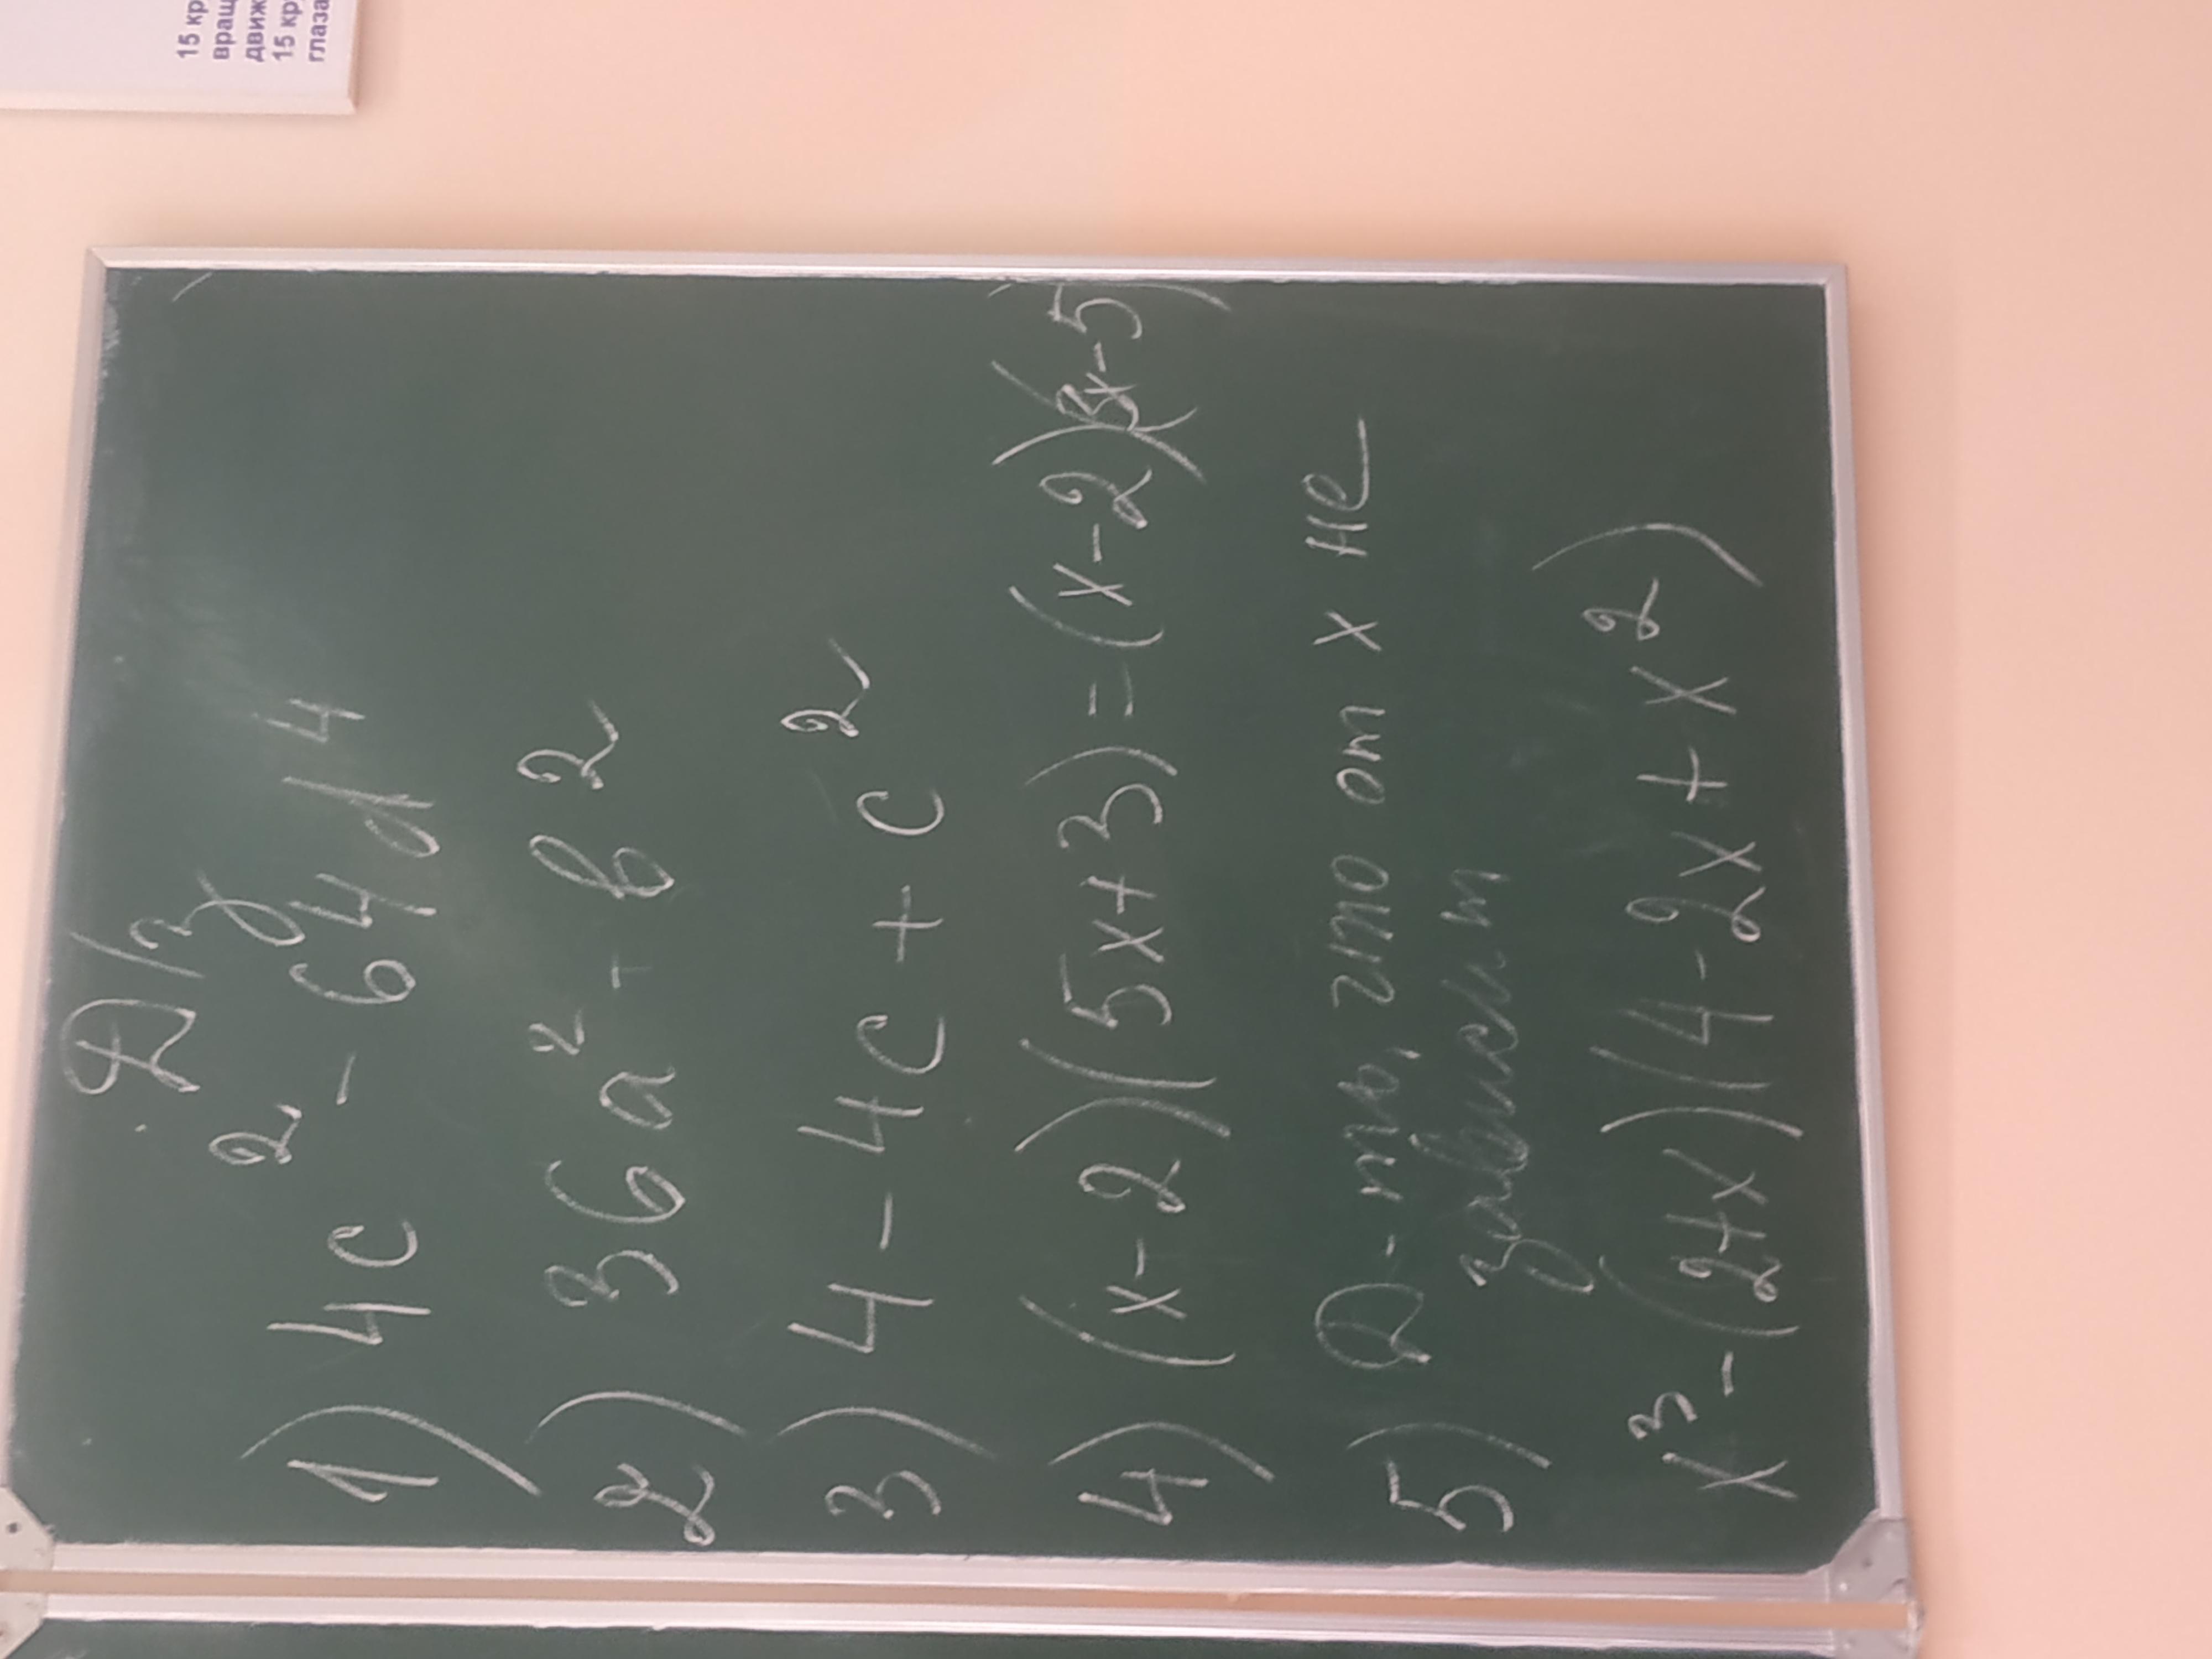 15 кр
вращ
движ
15 кр
глаза
Д/з
1) 4c² - 64d⁴
2) 36a² - b²
3) 4 - 4c + c²
4) (x-2)(5x+3) = (x-2)(3x-5)
5) Д-ть, что от x не
зависит
x³-(2+x)(4-2x+x²)